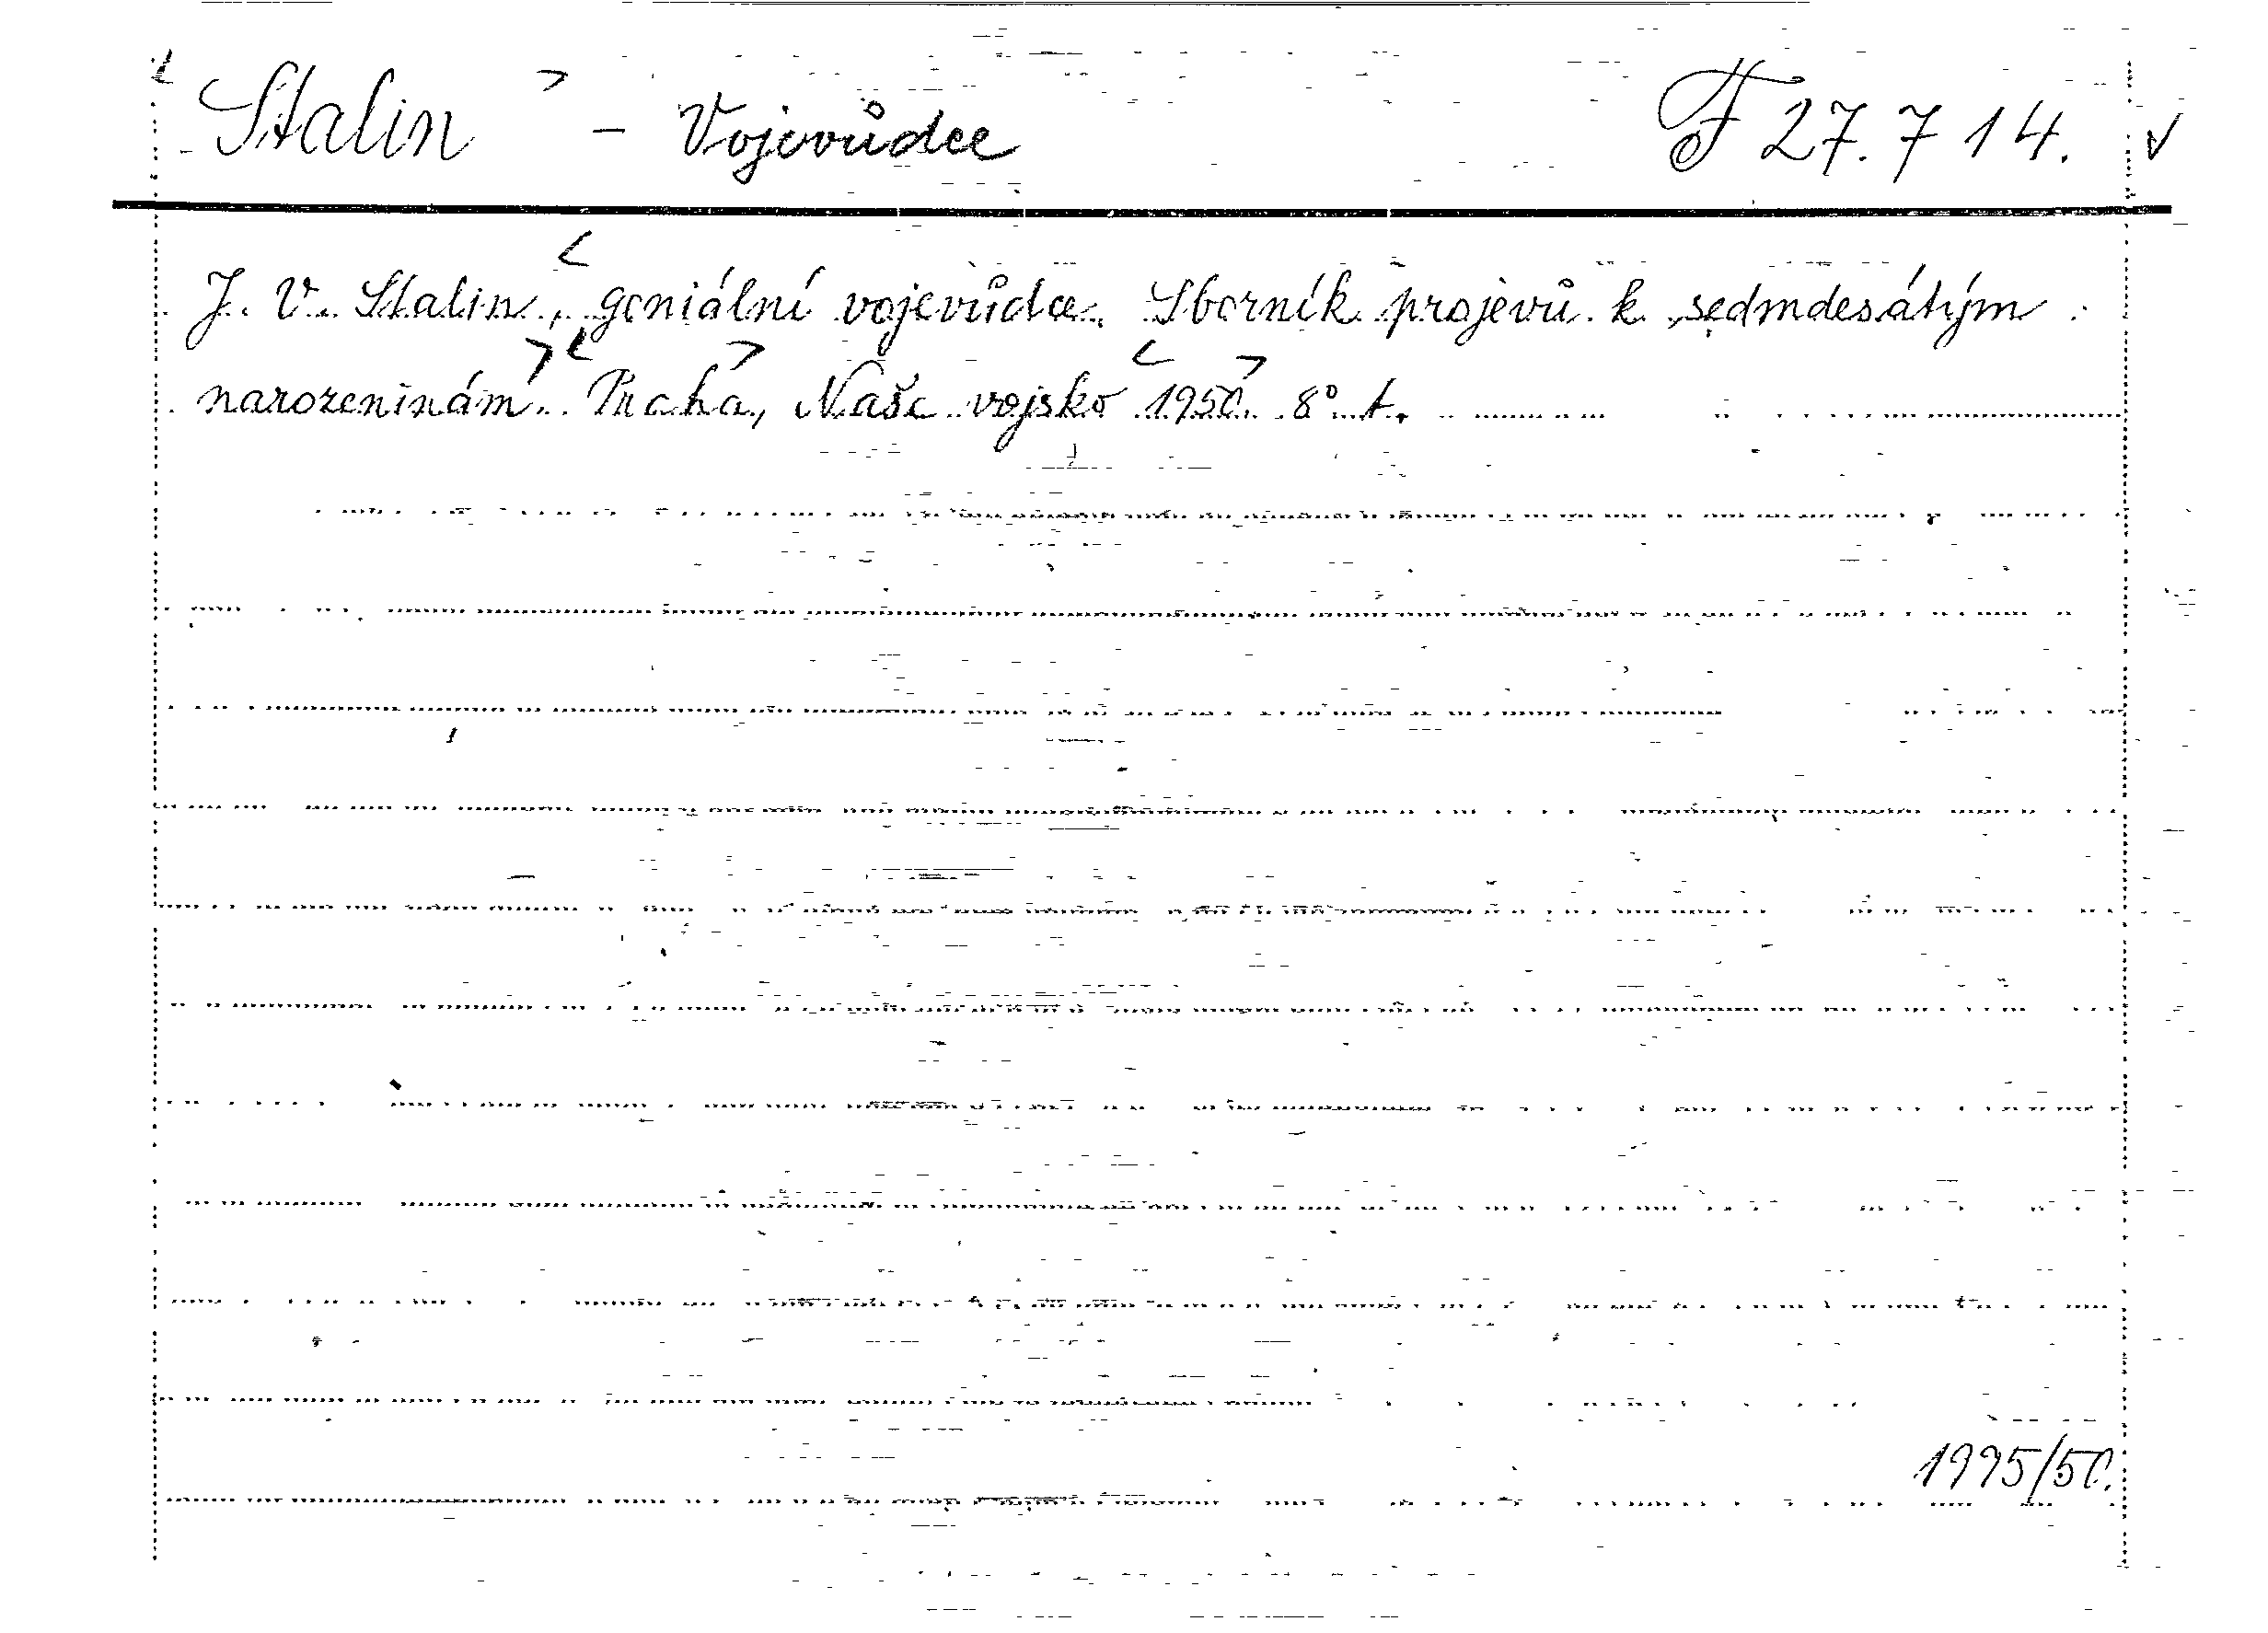 Stalin - Vojevůdce F 27.714.
J. V. Stalin, geniální vojevůdce. Sborník projevů k sedmdesátým
narozeninám. Praha, Naše vojsko 1950. 8° t.
1995/50.